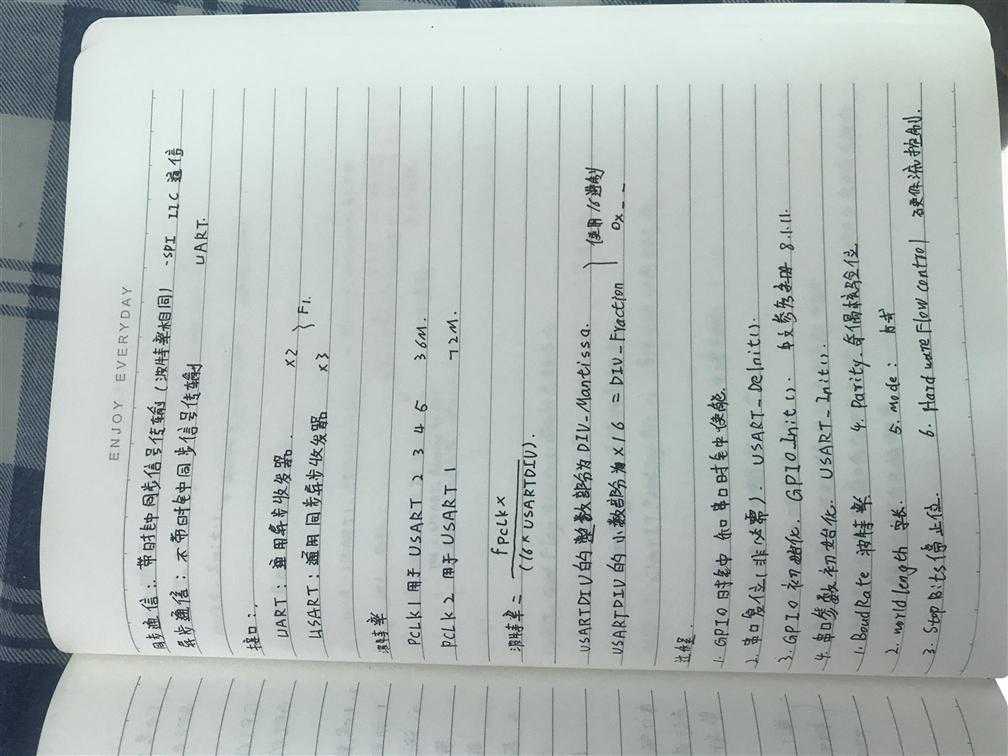 ENJOY EVERYDAY
同步通信：带时钟同步信号传输(波特率相同) -SPI IIC 通信
异步通信：不带时钟同步信号传输 UART.
接口：
UART：通用异步收发器. x2
USART：通用同步异步收发器 x3 } F1.
波特率
PCLK1用于USART 2 3 4 5 36M.
PCLK2用于USART 1 72M.
波特率 = fPCLKx
(16×USARTDIV).
USARTDIV的整数部分为DIV_Mantissa. } 使用16进制
USARTDIV的小数部分为×16 = DIV_Fraction 0x_ _
过程.
1. GPIO时钟和串口时钟使能.
2. 串口复位(非必需). USART_DeInit().
3. GPIO初始化. GPIO_Init(). 中文参考手册 8.1.11.
4. 串口参数初始化. USART_Init().
1. BoudRate 波特率 4. Parity. 奇偶校验位
2. world length 字长. 5. mode： 方式
3. Stop Bits停止位. 6. Hard ware Flow control 硬件流控制.